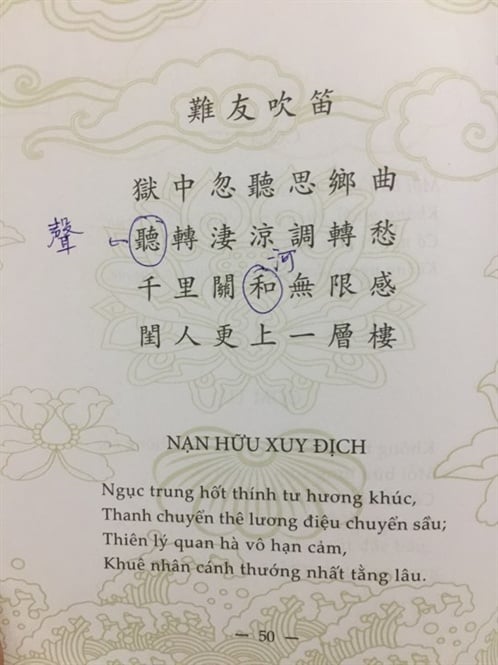 難友吹笛
獄中忽聽思鄉曲
聲 聽轉淒涼調轉愁
河
千里關和無限感
閨人更上一層樓
NẠN HỮU XUY ĐỊCH
Ngục trung hốt thính tư hương khúc,
Thanh chuyển thê lương điệu chuyển sầu;
Thiên lý quan hà vô hạn cảm,
Khuê nhân cánh thướng nhất tằng lâu.
— 50 —